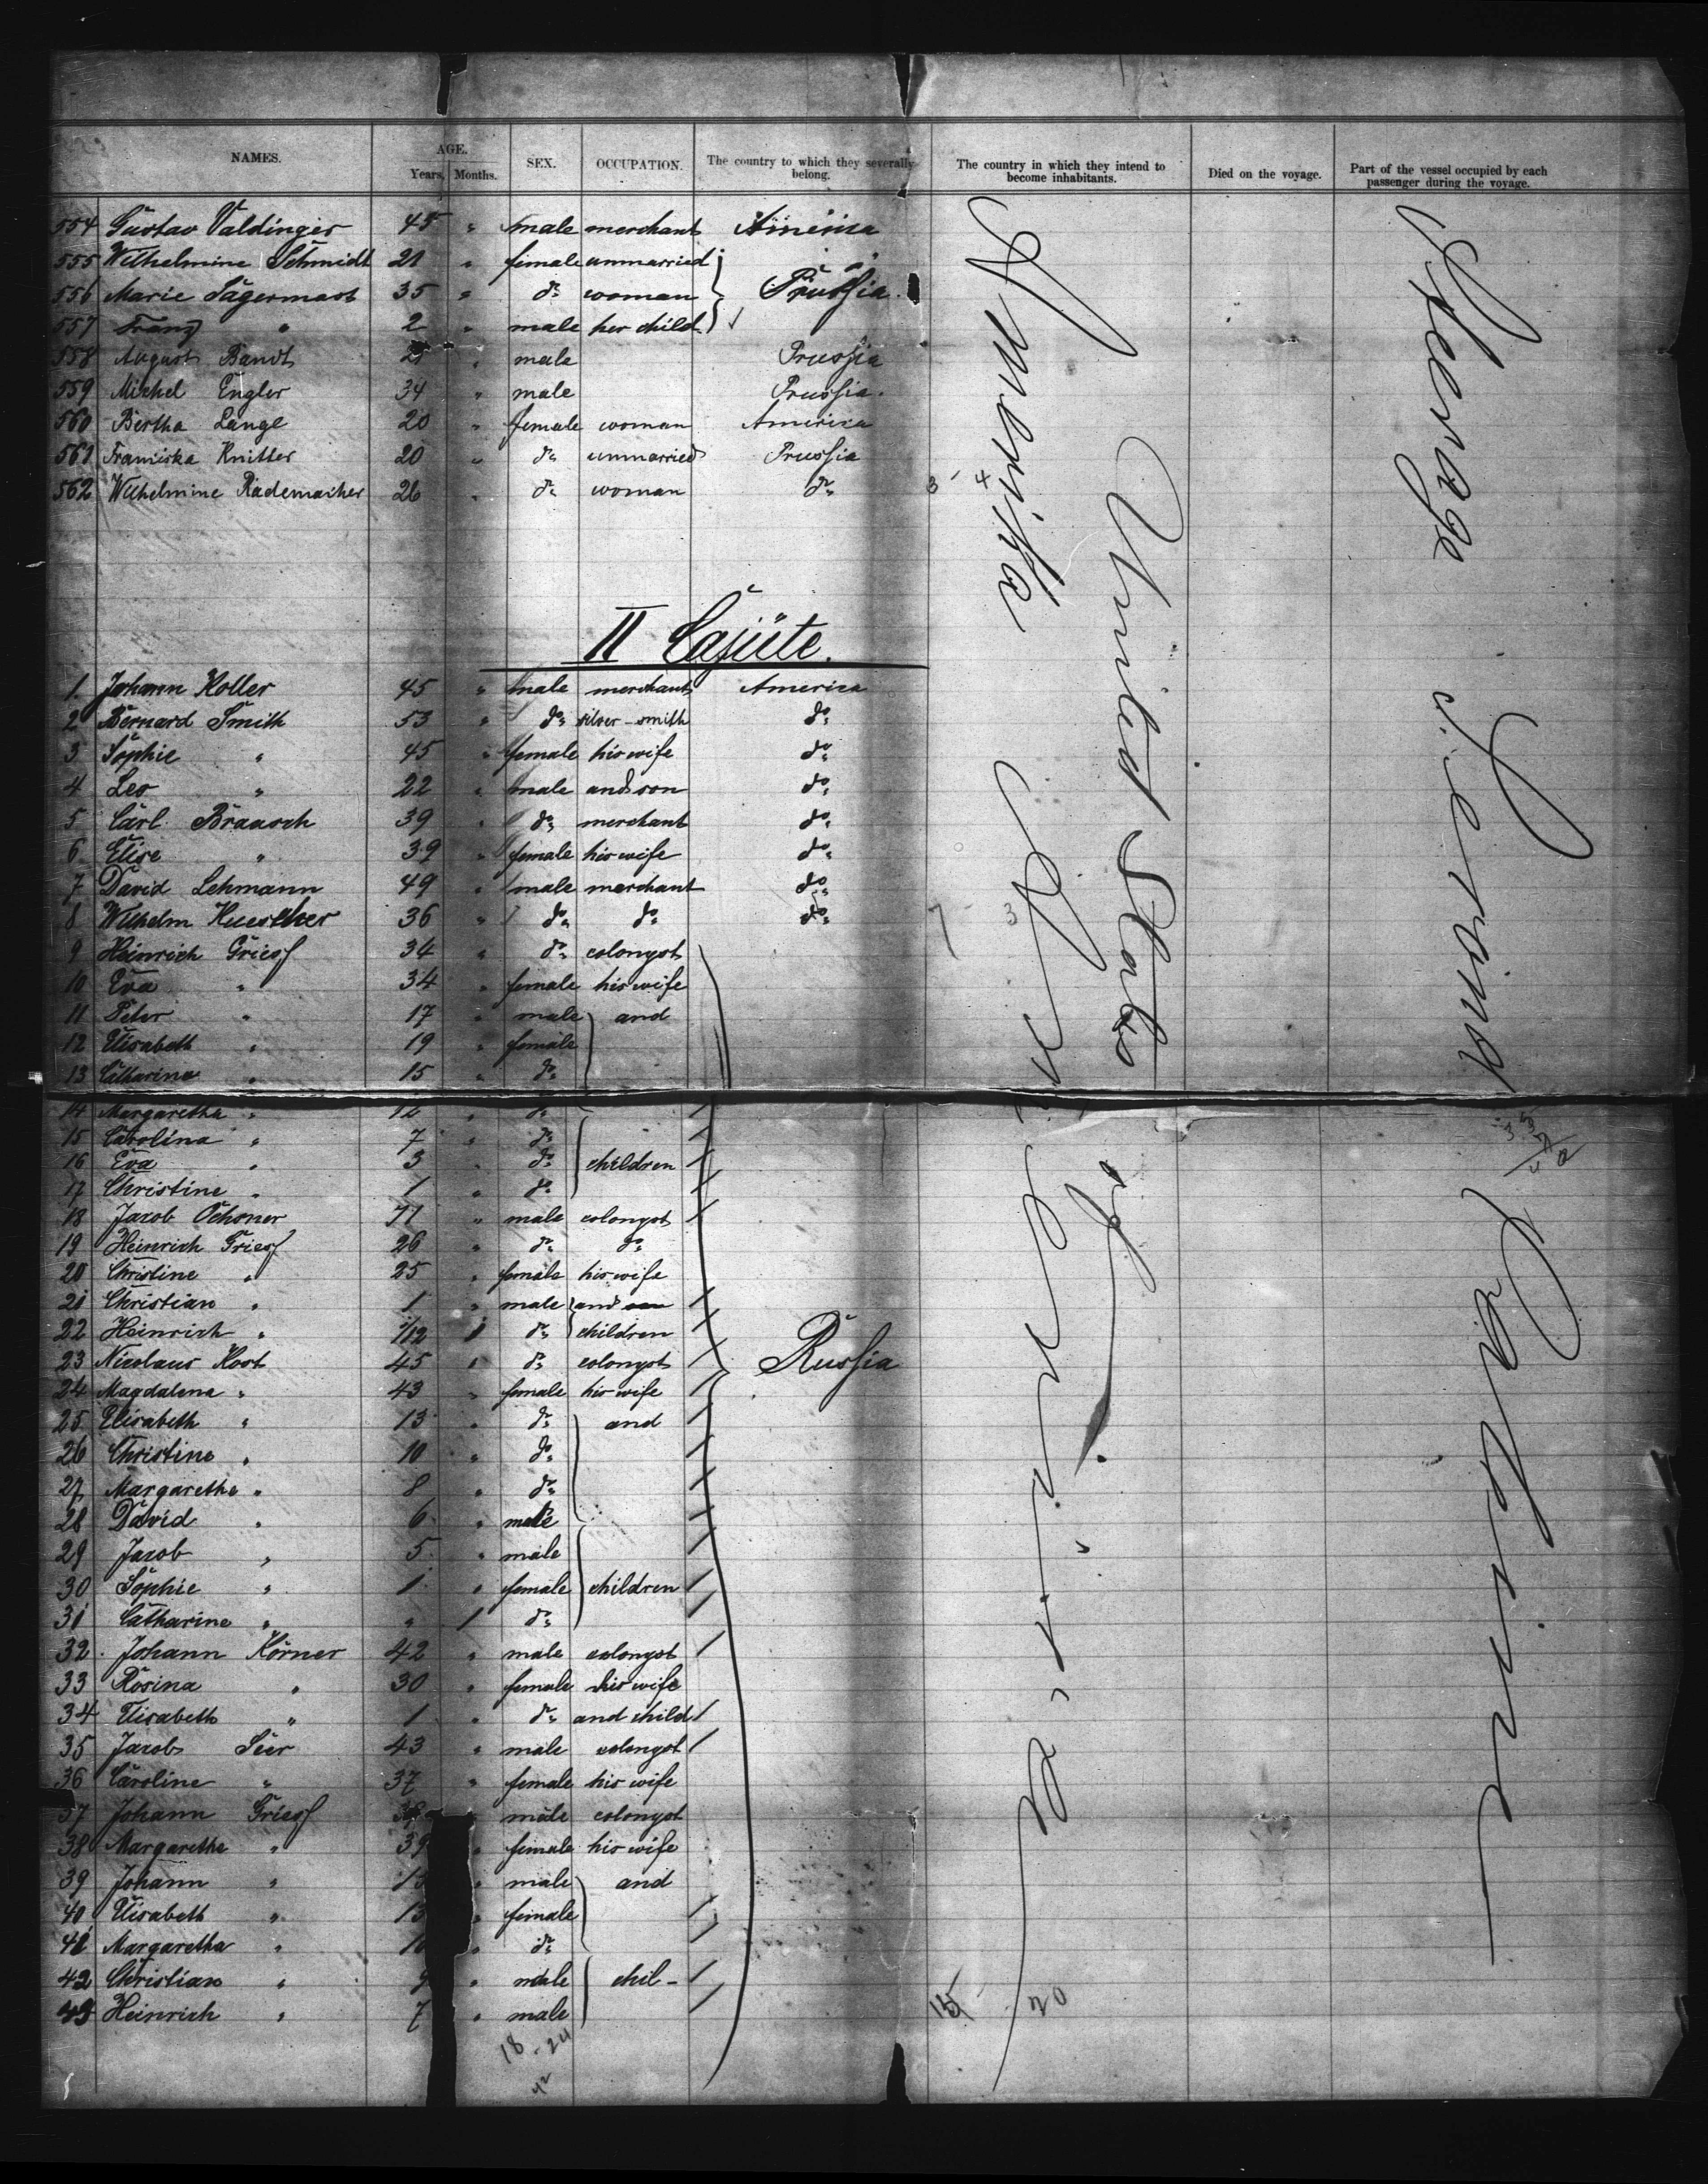 NAMES. AGE. Years, Months. SEX. OCCUPATION. The country to which they severally belong. The country in which they intend to become inhabitants. Died on the voyage. Part of the vessel occupied by each passenger during the voyage.
554 Gustav Valdinger 45 " male merchant America
555 Wilhelmine Schmidt 21 " female unmarried
556 Marie Jägermast 35 " do woman Prussia.
557 Franz " 2 " male her child
558 August Bandt " male Prussia
559 Michel Engler 34 " male Prussia.
560 Bertha Lange 20 " female woman America
561 Franziska Knitter 20 " do unmarried Prussia
562 Wilhelmine Rademacher 26 " do woman do
3 4
America
United States
Steerage
II Cajüte.
1. Johann Koller 45 " male merchant America
2 Bernard Smith 53 " do silver-smith do
3 Sophie " 45 " female his wife do
4 Leo " 22 " male and son do
5 Carl Braasch 39 " do merchant do
6 Elise " 39 " female his wife do
7 David Lehmann 49 " male merchant do
8 Wilhelm 36 " do do do
7 3
9 Heinrich Griess 34 " do colonyst
10 Eva " 34 " female his wife
11 Peter " 17 " male and
12 Elisabeth " 19 " female
13 Catharina " 15 " do
14 Margaretha " 12 " do
15 Carolina " 7 " do
16 Eva " 3 " do children
17 Christine " 1 " do
18 Jacob Ochsner 71 " male colonyst
19 Heinrich Griess 26 " do do
20 Christine " 25 " female his wife
21 Christian " 1 " male and
22 Heinrich " do children
23 Nicolaus Kost 45 " do colonyst Russia
24 Magdalena " 43 " female his wife
25 Elisabeth " 13 " do and
26 Christine " 10 " do
27 Margarethe " 8 " do
28 David " 6 " male
29 Jacob " 5 " male
30 Sophie " 1 " female children
31 Catharine " " 1 do
32. Johann Körner 42 " male colonyst
33 Rosina " 30 " female his wife
34 Elisabeth " 1 " do and child
35 Jacob Seer 43 " male colonyst
36 Caroline " 37 " female his wife
37 Johann Griess " male colonyst
38 Margaretha " 39 " female his wife
39 Johann " " male and
40 Elisabeth " 13 " female
41 Margaretha " " do
42 Christian " 9 " male chil-
43 Heinrich " 7 " male
18-24
42
15 20
America
Second
Cabin